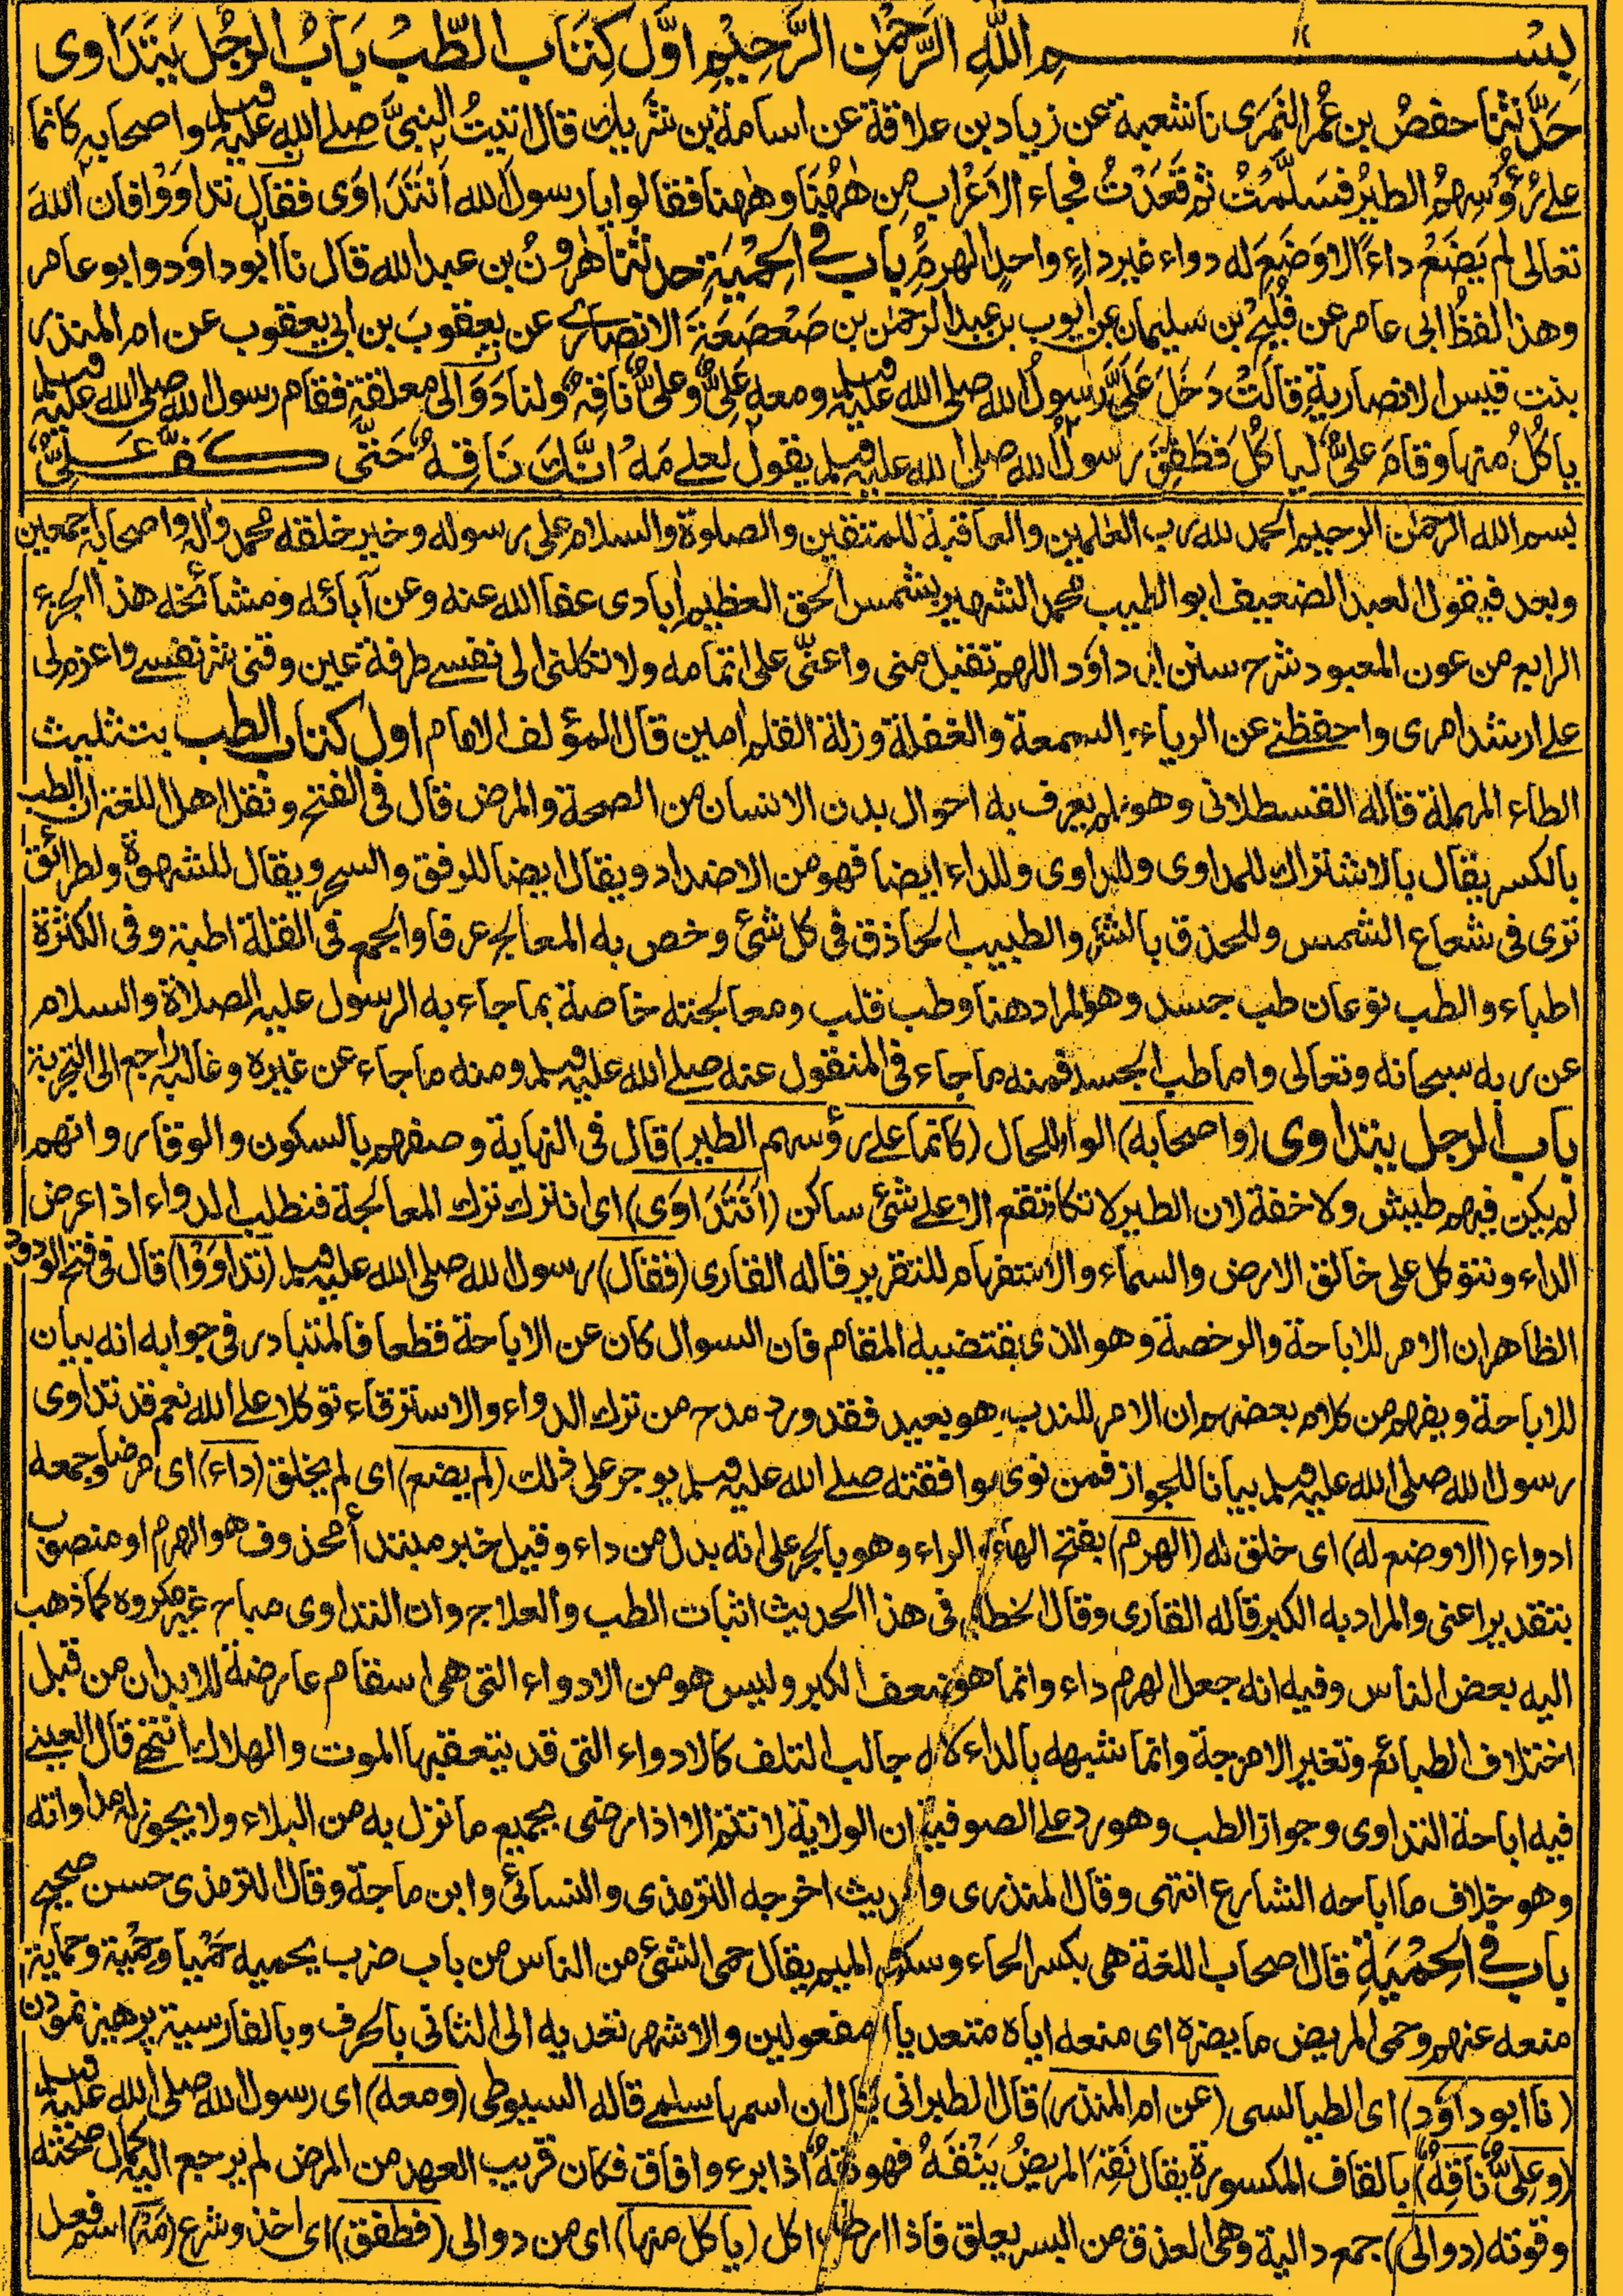 بسم الله الرحمن الرحيم اول كتاب الطب باب الرجل يتداوى
حدثنا حفص بن عمر النمرى نا شعبة عن زياد بن علاقة عن اسامة بن شريك قال اتيت النبى صلے الله عليه وسلم واصحابه كانما
علے رؤسهم الطير فسلمت ثم قعدت فجاء الاعراب من ههنا وههنا فقالوا يا رسول الله انتداوى فقال تداووا فان الله
تعالى لم يضع داء الا وضع له دواء غير داء واحد الهرم باب فے الحمية حدثنا هرون بن عبد الله قال نا ابو داود وابو عامر
وهذا لفظ ابى عامر عن فليح بن سليمان عن ايوب بن عبد الرحمن بن صعصعة الانصارے عن يعقوب بن ابى يعقوب عن ام المنذر
بنت قيس الانصارية قالت دخل على رسول الله صلى الله عليه وسلم ومعه على وعلى ناقه ولنا دوالى معلقة فقام رسول الله صلى الله عليه وسلم
ياكل منها وقام على لياكل فطفق رسول الله صلى الله عليه وسلم يقول لعلے مه انك ناقه حتى كف على
بسم الله الرحمن الرحيم الحمد لله رب العلمين والعاقبة للمتقين والصلوة والسلام على رسوله وخير خلقه محمد واله واصحابه اجمعين
وبعد فيقول العبد الضعيف ابو الطيب محمد الشهير بشمس الحق العظيم ابادى عفا الله عنه وعن آبائه ومشائخه هذا الجزء
الرابع من عون المعبود شرح سنن ابى داود اللهم تقبل منى واعنى على اتمامه ولا تكلنى الى نفسے طرفة عين وقنى شر نفسے واعزم لى
علے ارشد امرى واحفظنے عن الرياء والسمعة والغفلة وزلة القلم امين قال المؤلف الامام اول كتاب الطب بتثليث
الطاء المهملة قاله القسطلانى وهو علم يعرف به احوال بدن الانسان من الصحة والمرض قال فى الفتح ونقل اهل اللغة ان الطب
بالكسر يقال بالاشتراك للمداوى وللتداوى وللداء ايضا فهو من الاضداد ويقال ايضا للرفق والسحر ويقال للشهوة ولطرائق
ترى فى شعاع الشمس وللحذق بالشئ والطبيب الحاذق فى كل شئ وخص به المعالج عرفا والجمع فى القلة اطبة وفى الكثرة
اطباء والطب نوعان طب جسد وهو المراد هنا وطب قلب ومعالجته خاصة بما جاء به الرسول عليه الصلاة والسلام
عن ربه سبحانه وتعالى واما طب الجسد فمنه ما جاء فى المنقول عنه صلے الله عليه وسلم ومنه ما جاء عن غيره وغالبه راجع الى التجربة
باب الرجل يتداوى (واصحابه) الواو للحال (كانما على رؤسهم الطير) قال فى النهاية وصفهم بالسكون والوقار وانهم
لم يكن فيهم طيش ولا خفة لان الطير لا تكاد تقع الا علے شئ ساكن (انتداوى) اى انترك ترك المعالجة فنطلب الدواء اذا عرض
الداء ونتوكل على خالق الارض والسماء والاستفهام للتقرير قاله القارى (فقال) رسول الله صلى الله عليه وسلم (تداووا) قال فى فتح الودود
الظاهر ان الامر للاباحة والرخصة وهو الذى يقتضيه المقام فان السوال كان عن الاباحة قطعا فالمتبادر فى جوابه انه بيان
للاباحة ويفهم من كلام بعضهم ان الامر للندب وهو بعيد فقد ورد مدح من ترك الدواء والاسترقاء توكلا علے الله نعم قد تداوى
رسول الله صلى الله عليه وسلم بيانا للجواز فمن نوى موافقته صلے الله عليه وسلم يوجر على ذلك (لم يضع) اى لم يخلق (داء) اى مرضا وجمعه
ادواء (الا وضع له) اى خلق له (الهرم) بفتح الهاء والراء وهو بالجر على انه بدل من داء وقيل خبر مبتدأ محذوف هو الهرم او منصوب
بتقدير اعنى والمراد به الكبر قاله القارى وقال الخطابى فى هذا الحديث اثبات الطب والعلاج وان التداوى مباح غير مكروه كما ذهب
اليه بعض الناس وفيه انه جعل الهرم داء وانما هو ضعف الكبر وليس هو من الادواء التى هى اسقام عارضة للابدان من قبل
اختلاف الطبائع وتغير الامزجة وانما شبهه بالداء لانه جالب التلف كالادواء التى قد يتعقبها الموت والهلاك انتهے قال العينے
فيه اباحة التداوى وجواز الطب وهو رد علے الصوفية ان الولاية لا تتم الا اذا رضى بجميع ما نزل به من البلاء ولا يجوز له مداواته
وهو خلاف ما اباحه الشارع انتهى وقال المنذرى والحديث اخرجه الترمذى والنسائى وابن ماجة وقال الترمذى حسن صحيح
باب فے الحمية قال اصحاب اللغة هى بكسر الحاء وسكون الميم يقال حمى الشئ من الناس من باب ضرب يحميه حميا وحمية وحماية
منعه عنهم وحمى المريض ما يضره اى منعه اياه متعديا الى مفعولين والاشهر تعديه الى الثانى بالحرف وبالفارسية پرهيز نمودن
(نا ابو داود) اى الطيالسى (عن ام المنذر) قال الطبرانى يقال ان اسمها سلمے قاله السيوطى (ومعه) اى رسول الله صلى الله عليه وسلم
(وعلى ناقه) بالقاف المكسورة يقال نقه المريض ينقه فهو ناقه اذا برء وافاق فكان قريب العهد من المرض لم يرجع اليه كمال صحته
وقوته (دوالى) جمع دالية وهى العذق من البسر يعلق فاذا ارطب اكل (ياكل منها) اى من دوالى (فطفق) اى اخذ وشرع (مه) اسم فعل